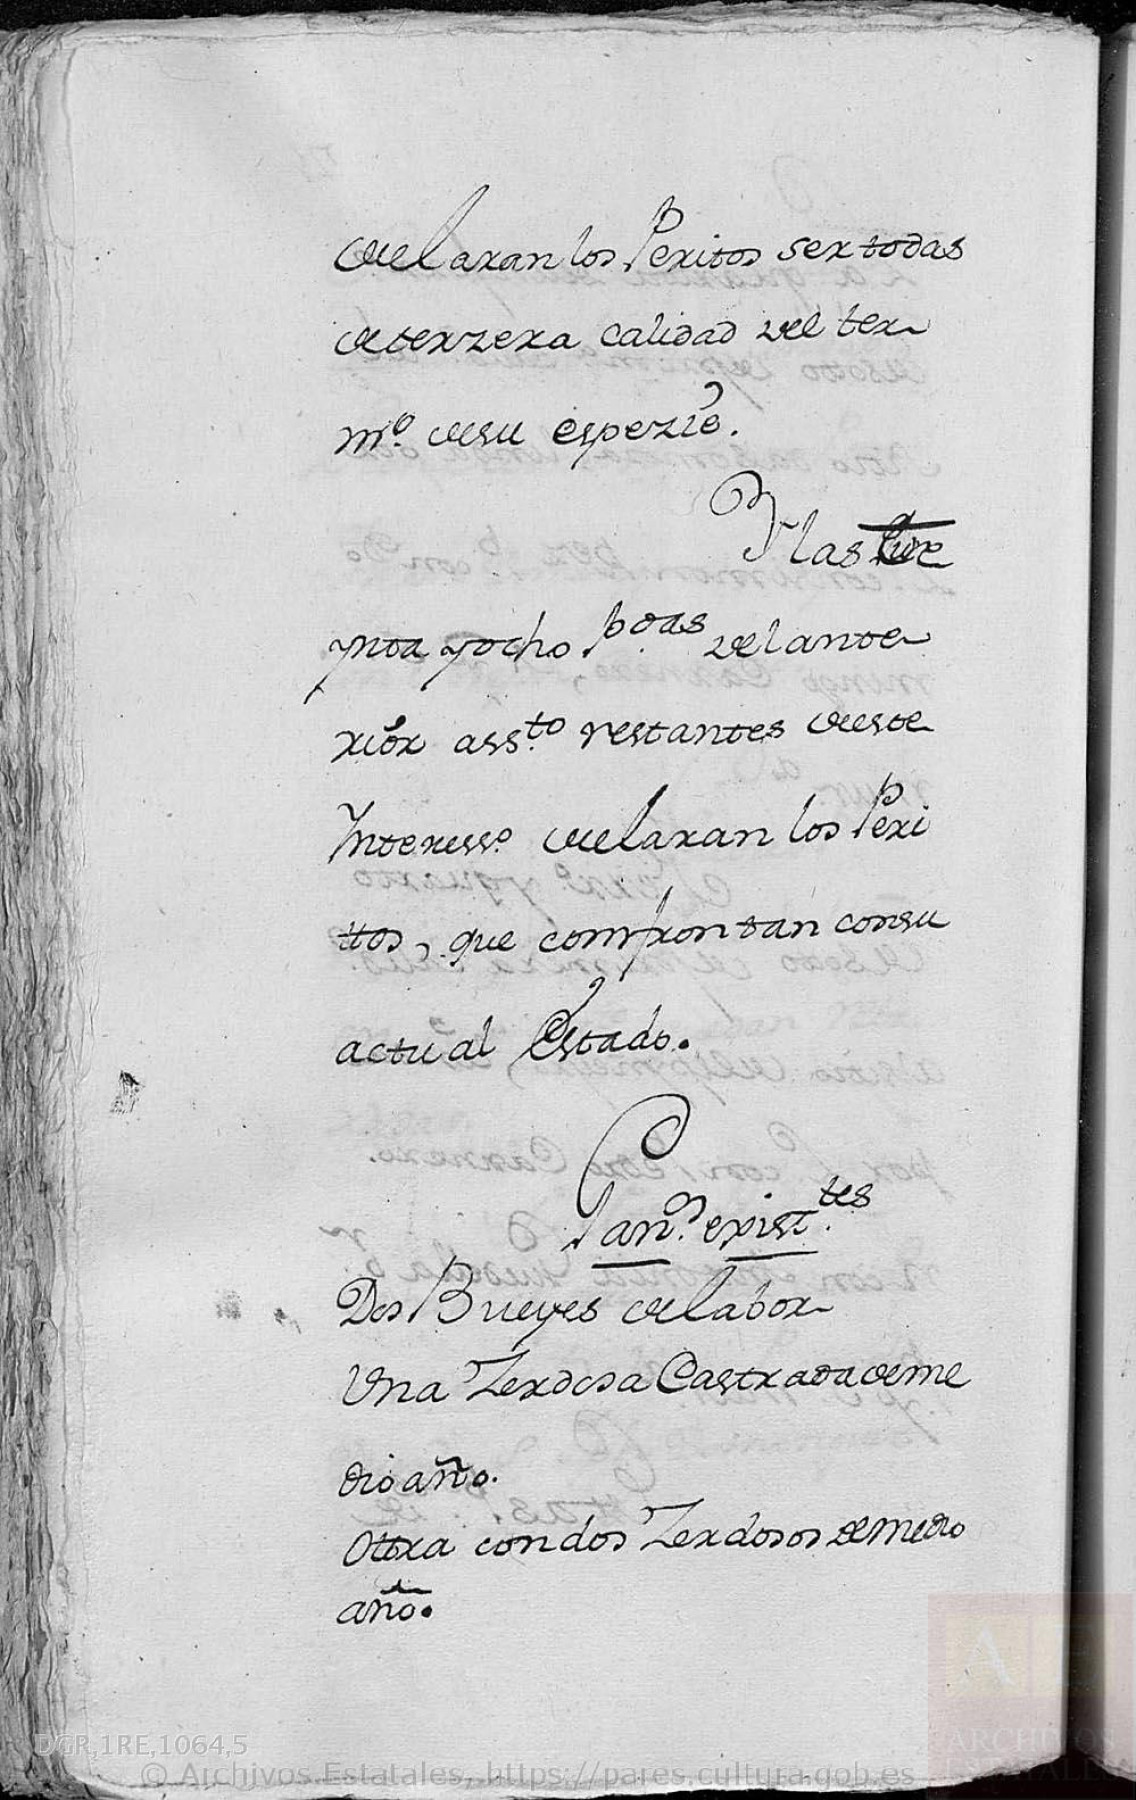 declaran los Peritos ser todas
de terzera calidad del ter
mº. de su espezie.
Y las tre
ynta y ocho p.das del ante
rior ass.to restantes de este
Interessº. declaran los Peri
ttos, que confrontan con su
actual Estado.
Gan.º exist.tes
Dos Bueyes de labor
Una Zerdosa Castrada de me
dio año.
Ottra con dos Zerdosos de medio
año.
DGR,1RE,1064,5
© Archivos Estatales, https://pares.cultura.gob.es
AE
ARCHIVOS
ESTATALES